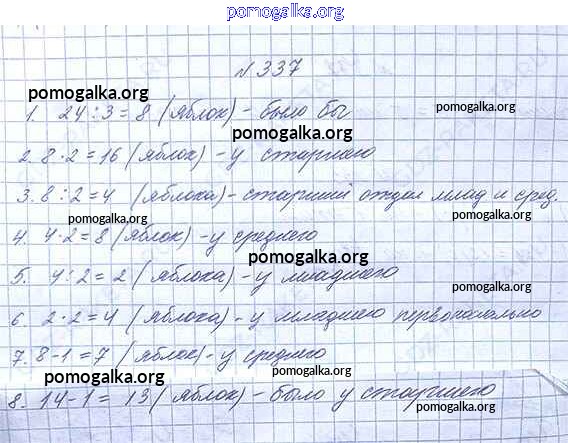 pomogalka.org
№ 337
pomogalka.org
1. 24 : 3 = 8 (яблок) - было бы
pomogalka.org
pomogalka.org
2. 8 · 2 = 16 (яблок) - у старшего
3. 8 : 2 = 4 (яблока) - старший отдал млад и сред.
pomogalka.org
pomogalka.org
4. 4 · 2 = 8 (яблок) - у среднего
pomogalka.org
5. 4 : 2 = 2 (яблока) - у младшего
pomogalka.org
pomogalka.org
6. 2 · 2 = 4 (яблока) - у младшего первоначально
7. 8 - 1 = 7 (яблок) - у среднего
pomogalka.org
8. 14 - 1 = 13 (яблок) - было у старшего
pomogalka.org